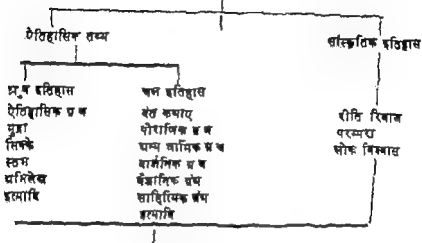 ऐतिहासिक तथ्य
सांस्कृतिक इतिहास
ध्रुव इतिहास
ऐतिहासिक ग्रंथ
मुद्रा
सिक्के
स्तंभ
अभिलेख
इत्यादि
चल इतिहास
दंत कथाए
पौराणिक ग्रंथ
अन्य धार्मिक ग्रंथ
दार्शनिक ग्रंथ
वैज्ञानिक ग्रंथ
साहित्यिक ग्रंथ
इत्यादि
रीति रिवाज
परम्परा
लोक विश्वास